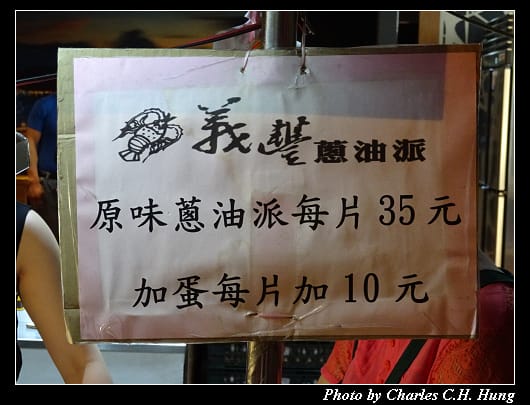 義豐蔥油派
原味蔥油派每片35元
加蛋每片加10元
Photo by Charles C.H. Hung